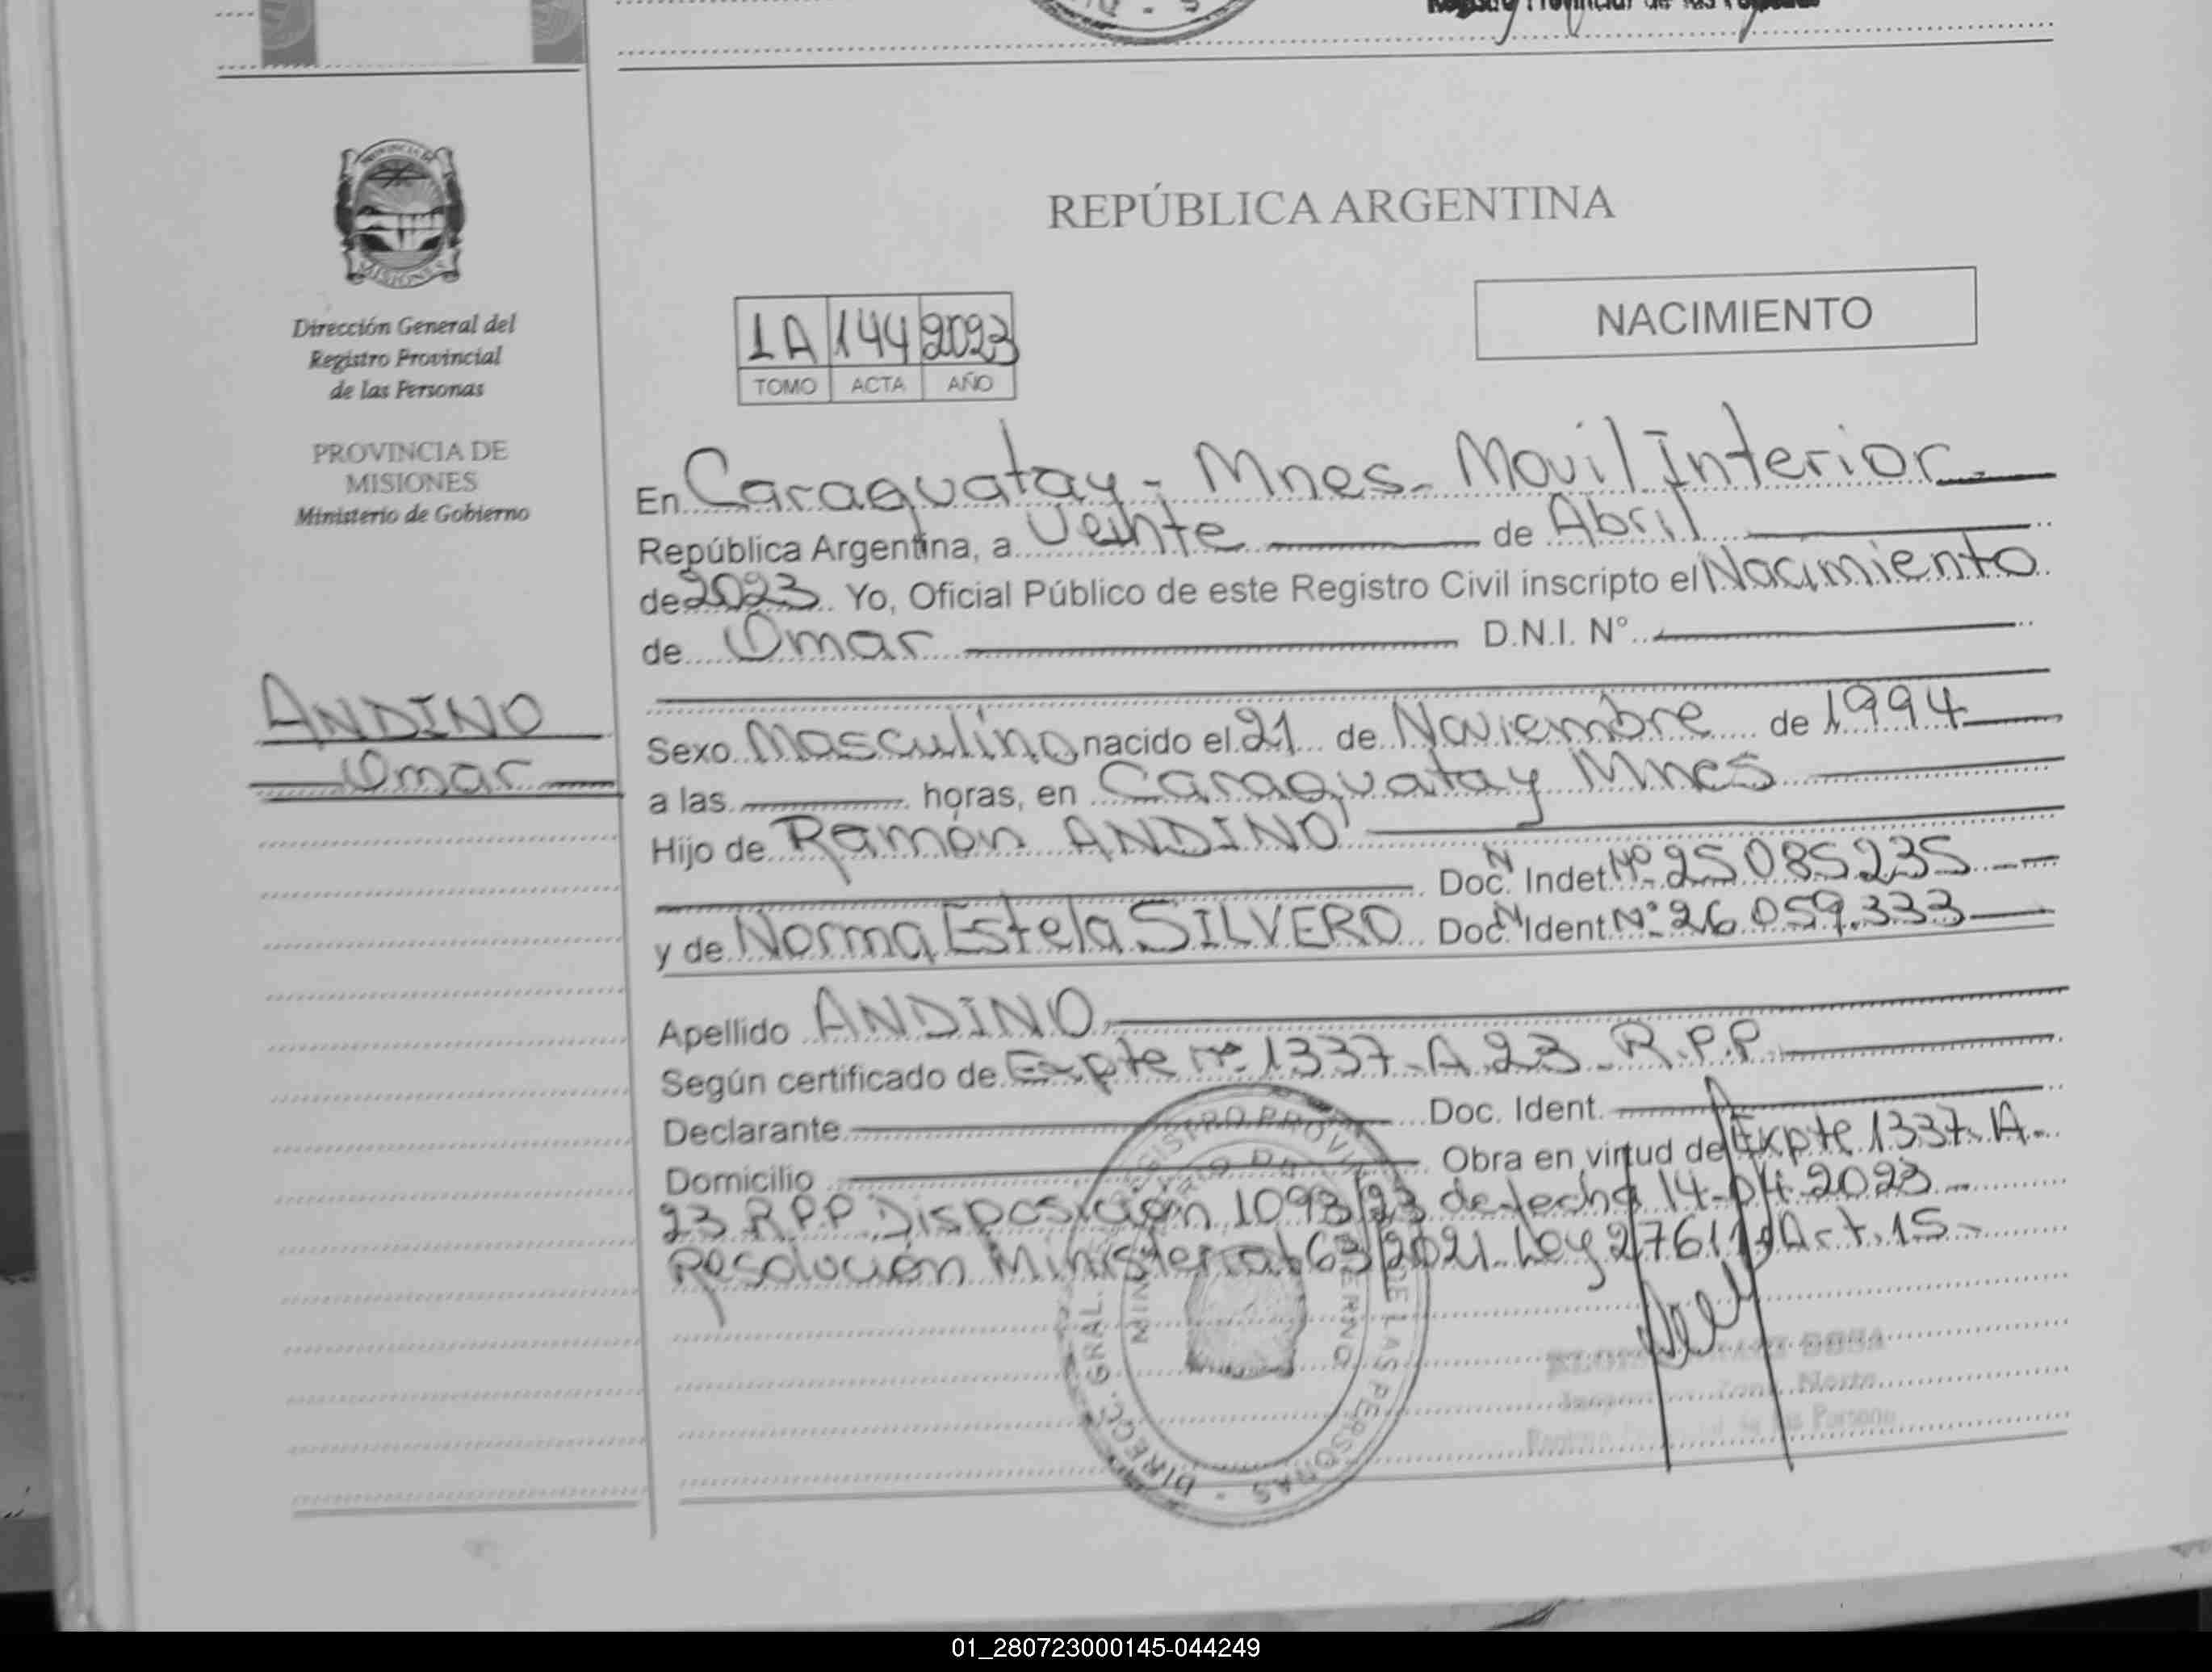 Registro Provincial de las Personas
PROVINCIA DE
MISIONES
Dirección General del
Registro Provincial
de las Personas
PROVINCIA DE
MISIONES
Ministerio de Gobierno
ANDINO
Omar
REPÚBLICA ARGENTINA
NACIMIENTO
1A 144 2023
TOMO ACTA AÑO
En Caraguatay - Mnes - Movil Interior
República Argentina, a Veinte de Abril
de 2023 Yo, Oficial Público de este Registro Civil inscripto el Nacimiento
de Omar D.N.I. N°
Sexo Masculino nacido el 21 de Noviembre de 1994
a las horas, en Caraguatay Mnes
Hijo de Ramón ANDINO
Doc. N Indet Nº 25085235
y de Norma Estela SILVERO Doc. N Ident Nº 26.059.333
Apellido ANDINO
Según certificado de Expte nº 1337-A 23 - R.P.P
Declarante Doc. Ident.
Domicilio Obra en virtud de Expte 1337-A-
23 R.P.P Disposición 1093/23 de fecha 14-04-2023
Resolución Ministerial 63/2021 Ley 27611 Art. 15-
DIRECC. GRAL. REGISTRO PROVINCIAL DE LAS PERSONAS
MINISTERIO DE GOBIERNO
Zona Norte
01_280723000145-044249